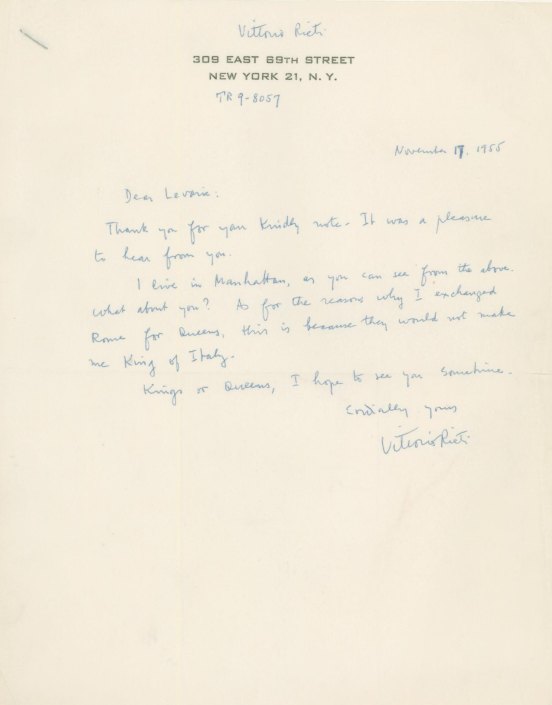 Vittorio Rieti
309 EAST 69TH STREET
NEW YORK 21, N. Y.
TR 9-8057
November 17, 1955
Dear Levarie:
Thank you for your kindly note - It was a pleasure
to hear from you.
I live in Manhattan, as you can see from the above.
What about you? As for the reasons why I exchanged
Rome for Queens, this is because they would not make
me King of Italy.
Kings or Queens, I hope to see you sometime.
Cordially yours
Vittorio Rieti